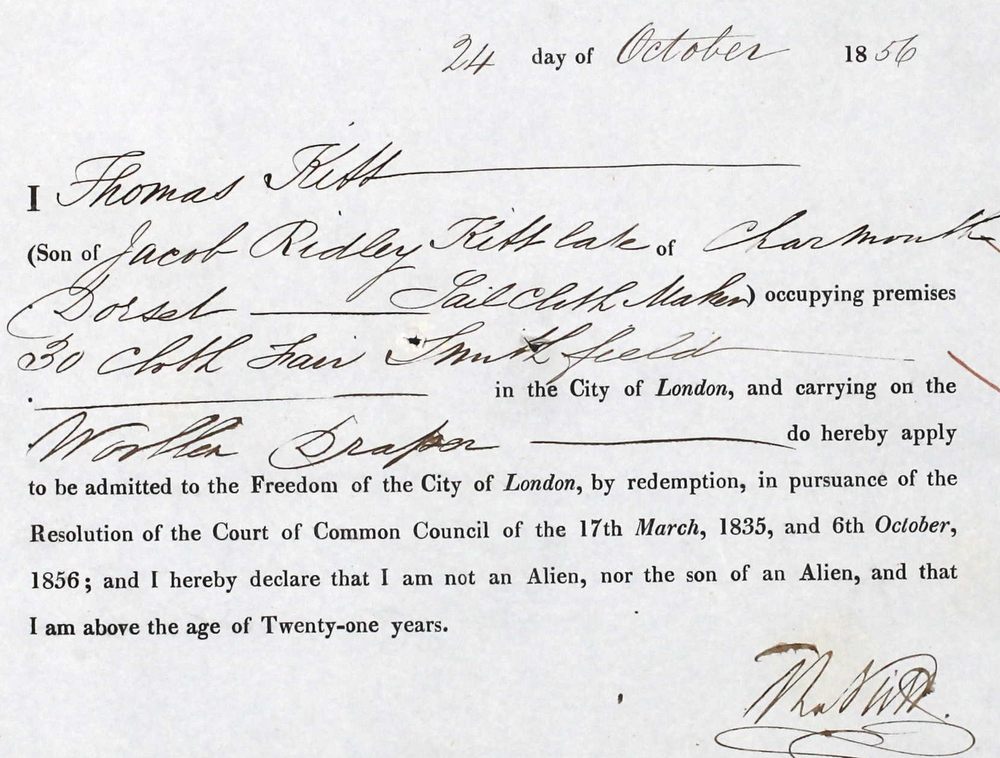 24 day of October 1856
I Thomas Kitt
(Son of Jacob Ridley Kitt late of Charmouth
Dorset Sail Cloth Maker) occupying premises
30 Cloth Fair Smithfield
in the City of London, and carrying on the
Woollen Draper do hereby apply
to be admitted to the Freedom of the City of London, by redemption, in pursuance of the
Resolution of the Court of Common Council of the 17th March, 1835, and 6th October,
1856; and I hereby declare that I am not an Alien, nor the son of an Alien, and that
I am above the age of Twenty-one years.
Thos Kitt.